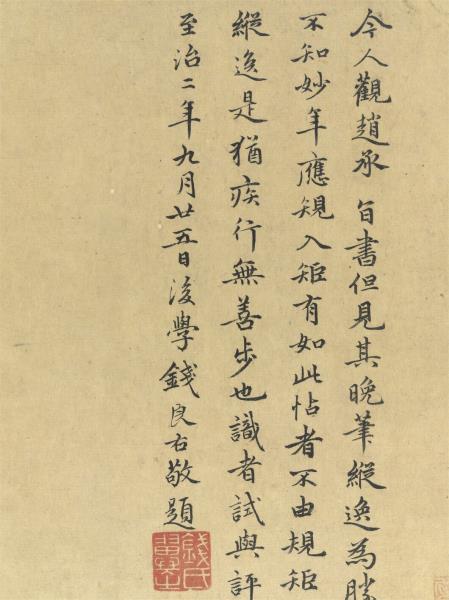 今人觀趙承旨書但見其晚筆縱逸為勝
不知妙年應規入矩有如此帖者不由規矩
縱逸是猶疾行無善步也識者試與評
至治二年九月廿五日後學錢良右敬題
錢氏